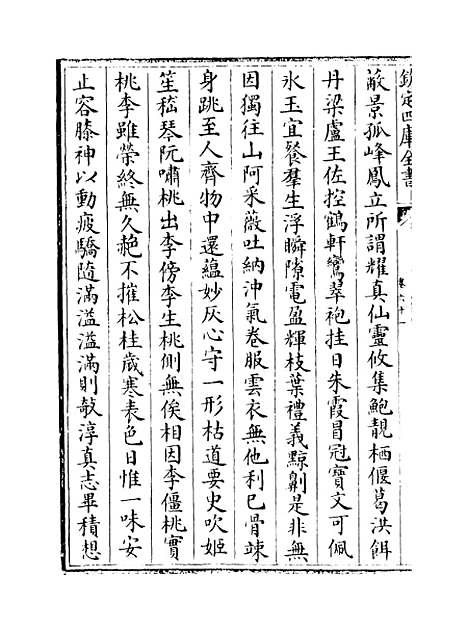 欽定四庫全書
卷六十一
蔽景孤峰鳳立所謂耀真仙靈攸集鮑靚栖偃葛洪餌
丹梁盧王佐控鶴軒鸞翠袍挂日朱霞冒冠寶文可佩
氷玉宜餐羣生浮瞬隙電盈輝枝葉禮義黥劓是非無
因獨往山阿采薇吐納沖氣卷服雲衣無他利已骨竦
身跳至人齊物中還蘊妙灰心守一形枯道要史吹姬
笙嵇琴阮嘯桃出李傍李生桃側無俟相因李僵桃實
桃李雖榮終無久赩不摧松桂歲寒表色日惟一味安
止容膝神以動疲驕隨滿溢溢滿則敧淳真志畢積想